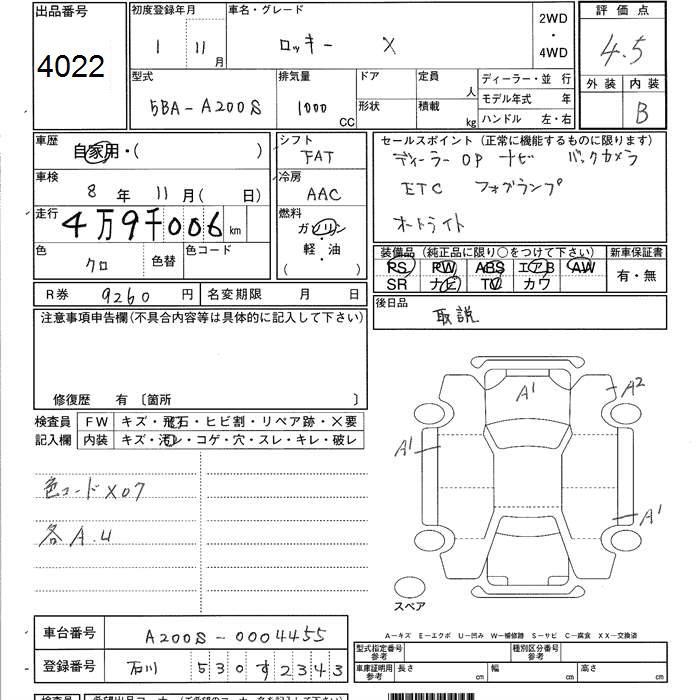 出品番号
4022
初度登録年月
1 11月
車名・グレード
ロッキー X
2WD
・
4WD
評価点
4.5
外装 内装
B
型式
5BA-A200S
排気量
1000 CC
ドア
形状
定員 人
積載 kg
ディーラー・並行
モデル年式 年
ハンドル 左・右
車歴
自家用・( )
車検
8年 11月( 日)
走行
4万9千006 km
色
クロ
色替
色コード
シフト
FAT
冷房
AAC
燃料
ガソリン
・
軽・油
( )
セールスポイント (正常に機能するものに限ります)
ディーラーOP ナビ バックカメラ
ETC フォグランプ
オートライト
装備品 (純正品に限り○をつけて下さい)
PS PW ABS エアB AW
SR ナビ TV カワ
新車保証書
有・無
R券 9260円
名変期限 月 日
後日品
取説
注意事項申告欄(不具合内容等は具体的に記入して下さい)
修復歴 有 〔箇所 〕
検査員
記入欄
FW キズ・飛石・ヒビ割・リペア跡・X要
内装 キズ・汚レ・コゲ・穴・スレ・キレ・破レ
色コードX07
各A.U
A1
A2
A1
A1
スペア
A-キズ E-エクボ U-凹み W-補修跡 S-サビ C-腐食 XX-交換済
車台番号 A200S-0004455
登録番号 石川 530す2343
型式指定番号
参考
種別区分番号
参考
車庫証明用
参考
長さ cm
幅 cm
高さ cm